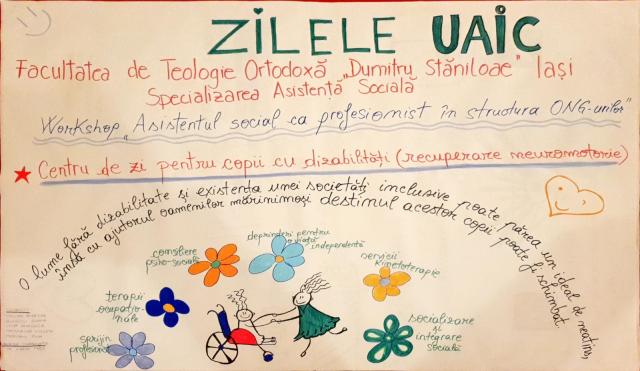 ZILELE UAIC
Facultatea de Teologie Ortodoxă „Dumitru Stăniloae" Iași
Specializarea Asistență Socială
Workshop „Asistentul social ca profesionist în structura ONG-urilor"
Centru de zi pentru copii cu dizabilități (recuperare neuromotorie)
O lume fără dizabilitate și existența unei societăți inclusive poate părea un ideal de neatins,
însă cu ajutorul oamenilor mărinimoși destinul acestor copii poate fi schimbat.
consiliere
psiho-socială
deprinderi pentru
o viață
independentă
servicii
kinetoterapie
terapii
ocupațio-
nale
socializare
și
integrare
socială
sprijin
profesional